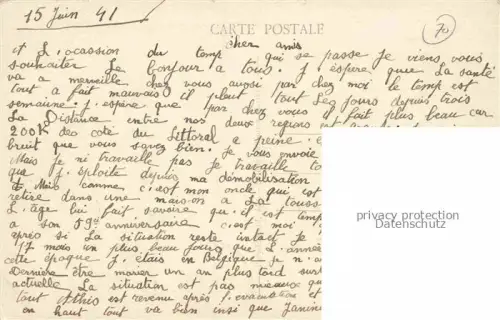 15 Juin 41
CARTE POSTALE
70
Cher amis
et L'ocassion du temp qui se passe je viens vous
souhaiter Le bonjour a tous. J'espère que La santé
va a merveille chez vous aussi par chez moi le temp est
tout a fait mauvais il pleut tout Les jours depuis trois
semaine. j'espère que par chez vous il fait plus beau car
La Distance entre nos deux regions est
200K deo coté du Littoral a peine
bruit que vous savez bien. Je vous envoie
Mais je ni travaille pas je travaille
que j'esploite depuis ma démobilisation
et Mais comme c'est mon oncle qui est
retiré dans une maison a La Touss
L'âge lui fait savoire que il est temp
a son 59e anniversaire c'est
après si La situation reste intact je
17 mois un plus beau jours que L'année
cette époque j'étais en Belgique je n'a
Dernière être marier un an plus tard sur
actuelle La situation est pas mieaux qu
tout Athis est revenu après l'evacuation et
en haut tout va bien insi que Janine
privacy protection
Datenschutz